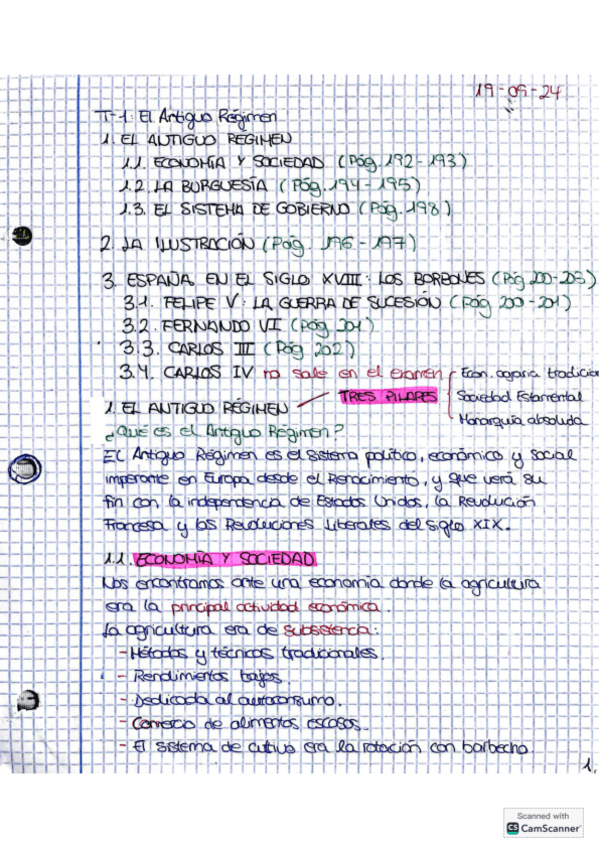 19-09-24
T-1: El Antiguo Régimen
1. EL ANTIGUO RÉGIMEN
1.1. ECONOMÍA Y SOCIEDAD (Pág. 192-193)
1.2. LA BURGUESÍA (Pág. 194-195)
1.3. EL SISTEMA DE GOBIERNO (Pág. 198)
2. LA ILUSTRACIÓN (Pág. 196-197)
3. ESPAÑA EN EL SIGLO XVIII: LOS BORBONES (Pág 200-203)
3.1. FELIPE V: LA GUERRA DE SUCESIÓN (Pág 200-201)
3.2. FERNANDO VI (Pág 201)
3.3. CARLOS III (Pág 202)
3.4. CARLOS IV no sale en el examen
Econ. agraria tradicion
1. EL ANTIGUO RÉGIMEN TRES PILARES Sociedad Estamental
Monarquía absoluta
¿Qué es el Antiguo Régimen?
El Antiguo Régimen es el sistema político, económico y social
imperante en Europa desde el Renacimiento, y que verá su
fin con la independencia de Estados Unidos, la Revolución
Francesa y las Revoluciones Liberales del siglo XIX.
1.1. ECONOMÍA Y SOCIEDAD
Nos encontramos ante una economía donde la agricultura
era la principal actividad económica.
La agricultura era de subsistencia:
- Métodos y técnicas tradicionales.
- Rendimientos bajos.
- Dedicada al autoconsumo.
- Comercio de alimentos escasos.
- El sistema de cultivo era la rotación con barbecho.
1.
Scanned with
CS CamScanner